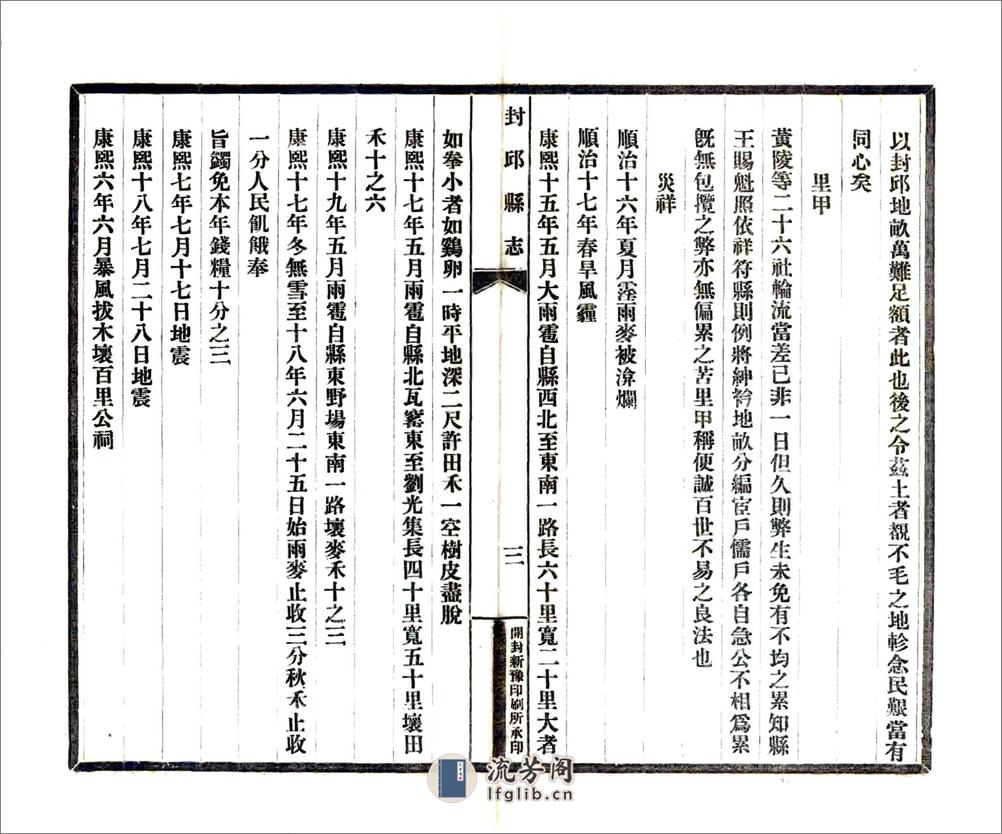 以封邱地畝萬難足額者此也後之令茲土者覩不毛之地軫念民艱當有
同心矣
里甲
黃陵等二十六社輪流當差已非一日但久則弊生未免有不均之累知縣
王賜魁照依祥符縣則例將紳衿地畝分編宦戶儒戶各自急公不相爲累
旣無包攬之弊亦無偏累之苦里甲稱便誠百世不易之良法也
災祥
順治十六年夏月霪雨麥被渰爛
順治十七年春旱風霾
康熙十五年五月大雨雹自縣西北至東南一路長六十里寬二十里大者
封邱縣志
三
開封新豫印刷所承印
如拳小者如鷄卵一時平地深二尺許田禾一空樹皮盡脫
康熙十七年五月雨雹自縣北瓦窰東至劉光集長四十里寬五十里壞田
禾十之六
康熙十九年五月雨雹自縣東野場東南一路壞麥禾十之三
康熙十七年冬無雪至十八年六月二十五日始雨麥止收三分秋禾止收
一分人民飢餓奉
旨蠲免本年錢糧十分之三
康熙七年七月十七日地震
康熙十八年七月二十八日地震
康熙六年六月暴風拔木壞百里公祠
流芳阁
lfglib.cn